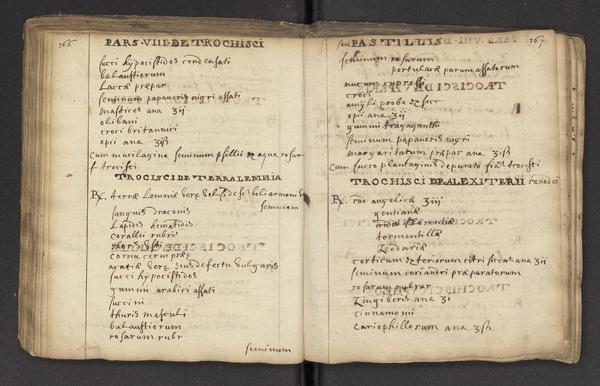 366
PARS·VIII·DE TROCHISCI
succi hypocistidos condensati
balaustiorum
Laccæ præpar
seminum papaveris nigri assati
mastices ana ʒij
olibani
croci britannici
opii ana ʒiß
Cum mucilagine seminum psillii & aqua rosar
f trocisci
TROCISCI DE TERRA LEMNIA
℞. terræ Lemniæ veræ vel boli armeni
sanguis draconis
Lapidis hematidis
corallii rubri
cornu cervi præp
acatiæ veræ eius defectu vulgaris
succi hypocistidos
gummi arabici assati
succini
thuris masculi
balaustiorum
rosarum rubr
seminum
seu PASTILLIS
367
seminum rosarum
portulacæ parum assatorum
nucum cupressi
croci
amyli probe & sicc
opii ana ʒij
gummi tragaganthi
seminum papaveris nigri
margaritarum præpar ana ʒiß
Cum succo plantaginis depurato fiat trocisci
TROCHISCI DE ALEXITERII renodei
℞. rad angelicæ ʒiij
gentianæ
ireos florentiæ
tormentillæ
Zeodariæ
corticum exteriorum citri siccat ana ʒij
seminum coriandri præparatorum
rosarum rubrar
Zingiberis ana ʒi
cinnamomi
Cariophillorum ana ʒß